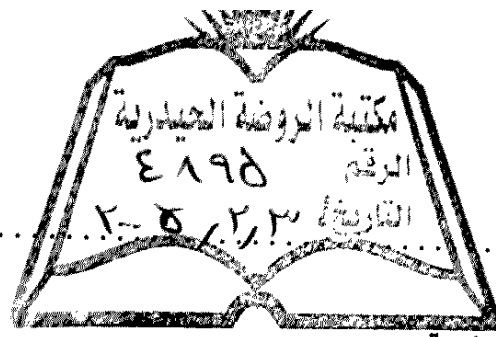 مكتبة الروضة الحيدرية
الرقم ٤٨٩٥
التاريخ